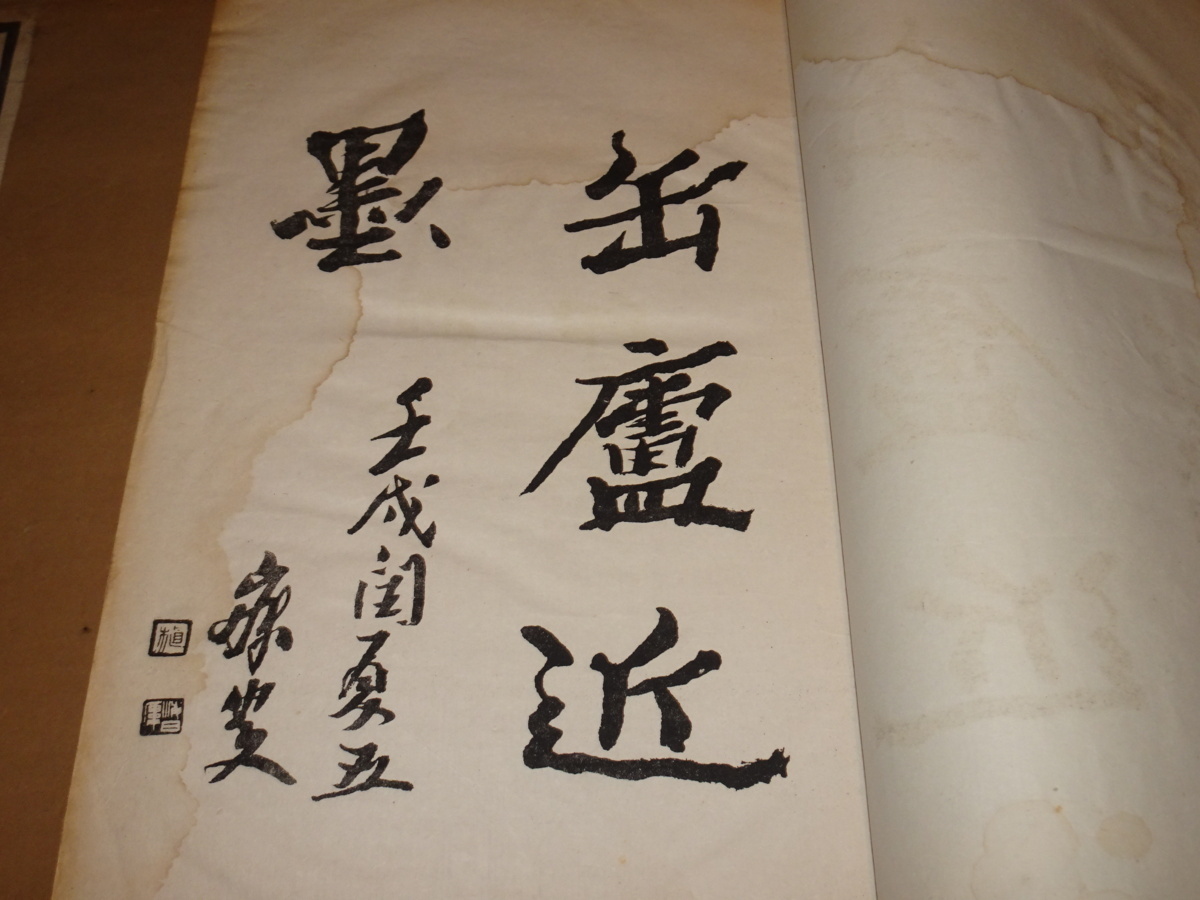 缶廬近
墨
壬戌閏夏五
寐叟
植